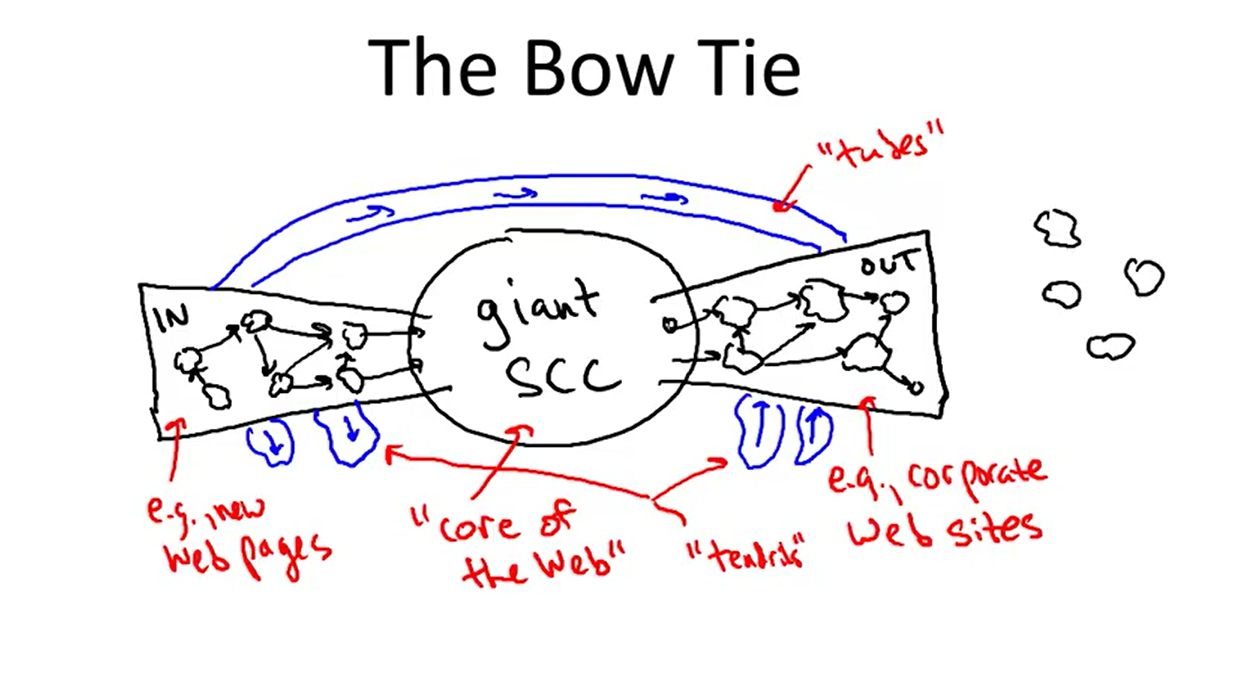 The Bow Tie
"tubes"
IN
giant
SCC
OUT
e.g., new
Web pages
"core of
the Web"
"tendrils"
e.g., corporate
Web sites